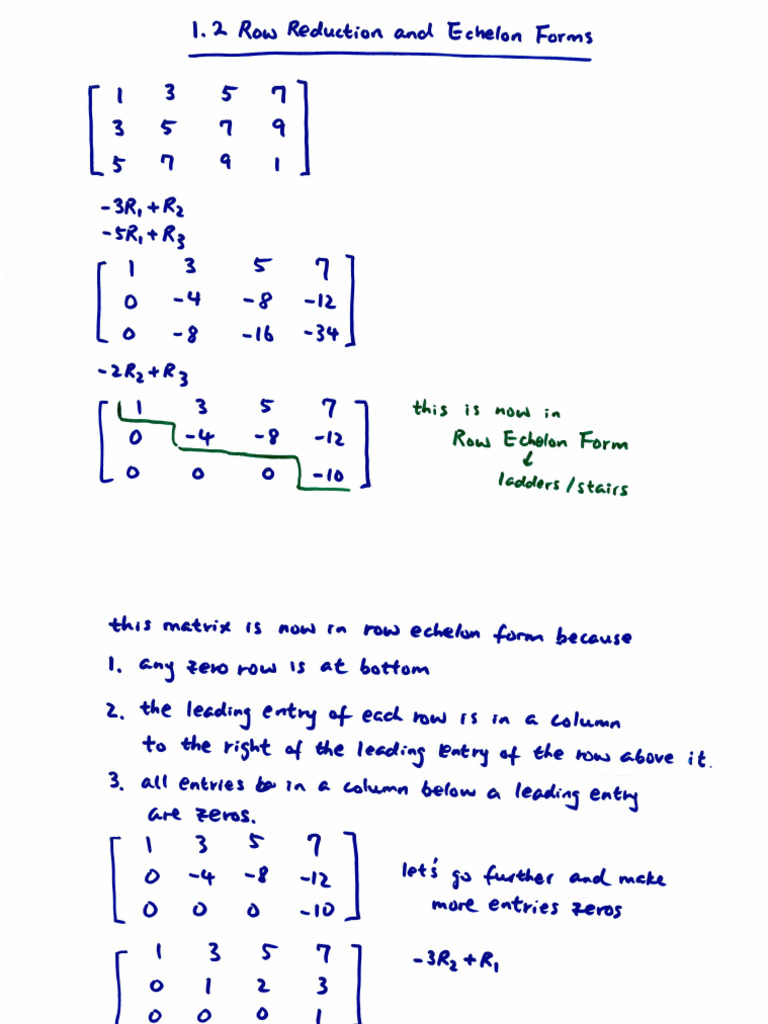 1.2 Row Reduction and Echelon Forms
1 3 5 7
3 5 7 9
5 7 9 1
-3R₁+R₂
-5R₁+R₃
1 3 5 7
0 -4 -8 -12
0 -8 -16 -34
-2R₂+R₃
1 3 5 7
0 -4 -8 -12
0 0 0 -10
this is now in
Row Echelon Form
ladders/stairs
this matrix is now in row echelon form because
1. any zero row is at bottom
2. the leading entry of each row is in a column
to the right of the leading entry of the row above it.
3. all entries in a column below a leading entry
are zeros.
1 3 5 7
0 -4 -8 -12
0 0 0 -10
let's go further and make
more entries zeros
1 3 5 7
0 1 2 3
0 0 0 1
-3R₂+R₁